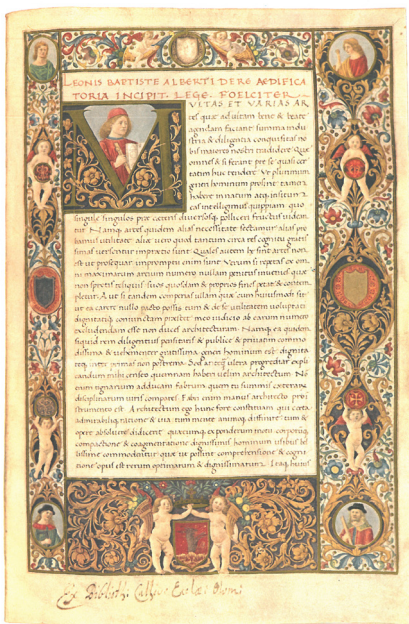 LEONIS BAPTISTE ALBERTI DE RE AEDIFICA
TORIA INCIPIT. LEGE. FOELICITER
VLTAS ET VARIAS AR
tes quae ad vitam bene & beate
agendam faciant summa indu
stria & diligentia conquisitas no
bis maiores nostri tradidere Que
omnes & si ferant pre se quasi cer
tatim huc tendere Vt plurimum
generi hominum prosint tamen
habere innatum atq; insitum
eas intelligimus quippiam quo
singule singulos prae ceteris diversosq; polliceri fructus videan
tur Namq; artes quidem alias necessitate sectamur alias pro
bamus utilitate alie vero quod tantum circa res cognitu grati
simas versentur in pretio sunt Quales autem he sint artes non
est ut prosequar in promptu enim sunt Verum si repetas ex om
ni maximarum artium numero nullam penitus invenies quae
non spretis reliquis suos quosdam & proprios fines petat & contem
pletur Aut si tandem comperias ullam quae cum huiusmodi sit
ut ea carere nullo pacto possis tum & de se utilitatem voluptati
dignitatiq; coniunctam praestet meo iudicio ab earum numero
excludendam esse non duces architecturam Namq; ea quidem
siquid rem diligentius pensitaris & publice & privatim commo
dissima & vehementer gratissima generi hominum est dignita
teq; inter primas non postrema Sed antequam ultra progrediar expli
candum mihi censeo quemnam haberi velim architectum Non
enim tignarium adducam fabrum quem tu summis caeterarum
disciplinarum viris compares Fabri enim manus architecto pro
instrumento est Architectum ego hunc fore constituam qui certa
admirabiliq; ratione & via tum mente animoq; diffinire tum &
opere absolvere didicerit quaecumq; ex ponderum motu corporumq;
compactione & coagmentatione dignissimis hominum usibus bel
lissime commodentur que ut possint comprehensione & cogni
tione opus est rerum optimarum & dignissimarum Itaq; huius
Ex Bibliotheca Olom